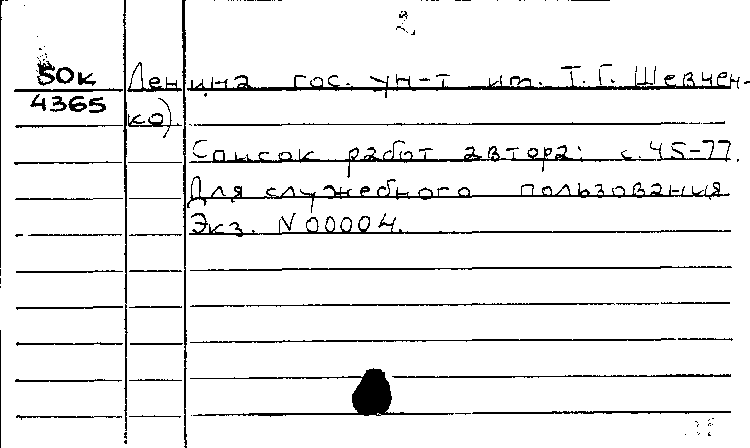 2
50к
4365
Ленина гос. ун-т им. Т.Г. Шевчен-
ко).
Список работ автора: с. 45-77.
Для служебного пользования
Экз. N 00004.